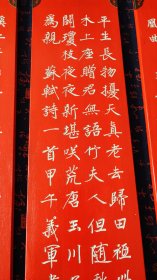 平生長物擾天真老去歸田
木上座贈君無語竹夫人但隨秋
鬭瓊枝夜夜新堪咲荒唐玉川
為親 蘇軾詩一首甲午義軍